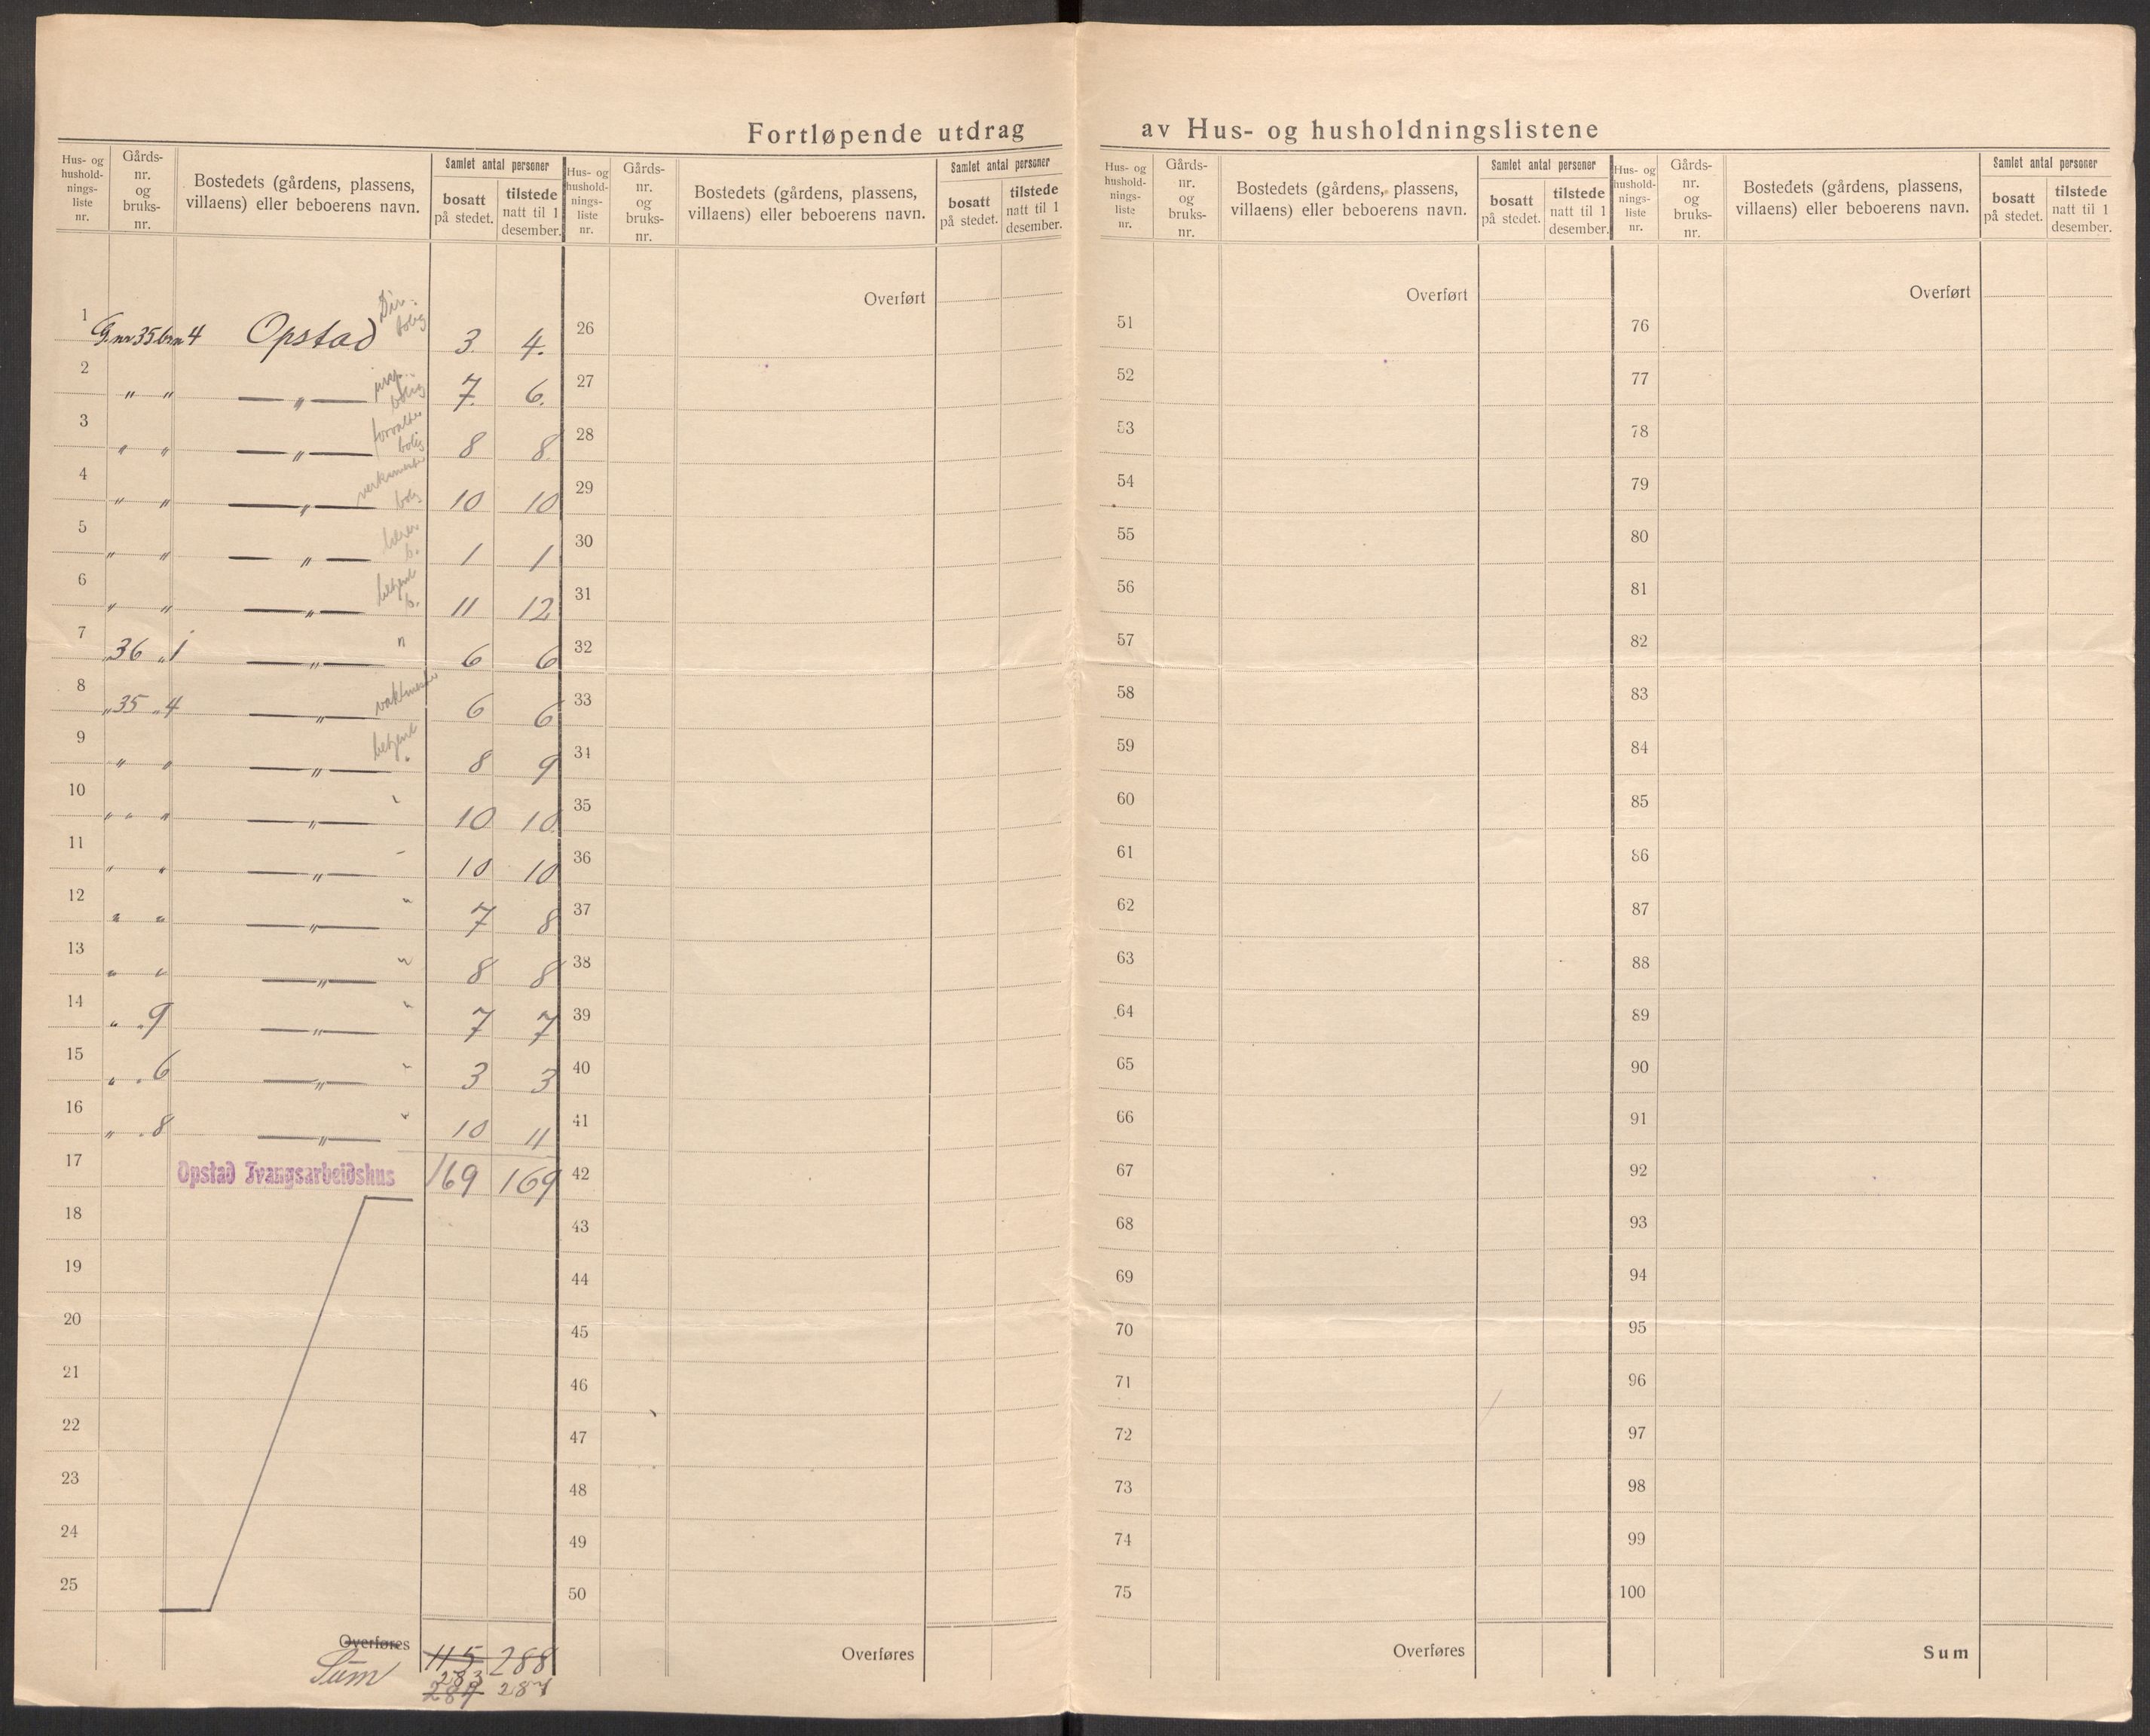 Fortløpende utdrag av Hus- og husholdningslistene
Hus- og hushold-nings-liste nr. | Gårds-nr. og bruks-nr. | Bostedets (gårdens, plassens, villaens) eller beboerens navn. | Samlet antal personer | bosatt på stedet. | tilstede natt til 1 desember.
Hus- og hushold-nings-liste nr. | Gårds-nr. og bruks-nr. | Bostedets (gårdens, plassens, villaens) eller beboerens navn. | Samlet antal personer | bosatt på stedet. | tilstede natt til 1 desember.
Hus- og hushold-nings-liste nr. | Gårds-nr. og bruks-nr. | Bostedets (gårdens, plassens, villaens) eller beboerens navn. | Samlet antal personer | bosatt på stedet. | tilstede natt til 1 desember.
Hus- og hushold-nings-liste nr. | Gårds-nr. og bruks-nr. | Bostedets (gårdens, plassens, villaens) eller beboerens navn. | Samlet antal personer | bosatt på stedet. | tilstede natt til 1 desember.
1 Gnr 35 bnr 4 Opstad Dir.- bolig 3. 4.
2 " " — " — bolig 7. 6.
3 " " — " — forvalter bolig 8 8.
4 " " — " — verksmester bolig 10 10
5 " " — " — lærer b. 1 1
6 " " — " — betjent b. 11 12
7 " 36 " 1 — " — " 6 6
8 " 35 " 4 — " — vaktmester 6 6
9 " " — " — betjent 8 9
10 " " " — " — " 10 10
11 " " — " — " 10 10
12 " " — " — " 7 8
13 " " — " — " 8 8
14 " " 9 — " — " 7 7
15 " " 6 — " — " 3 3
16 " " 8 — " — " 10 11
17 Opstad Tvangsarbeidshus 169 169
18
19
20
21
22
23
24
25
Overføres 115 288
Sum 283
284 287
Overført
26
27
28
29
30
31
32
33
34
35
36
37
38
39
40
41
42
43
44
45
46
47
48
49
50
Overføres
Overført
51
52
53
54
55
56
57
58
59
60
61
62
63
64
65
66
67
68
69
70
71
72
73
74
75
Overføres
Overført
76
77
78
79
80
81
82
83
84
85
86
87
88
89
90
91
92
93
94
95
96
97
98
99
100
Sum